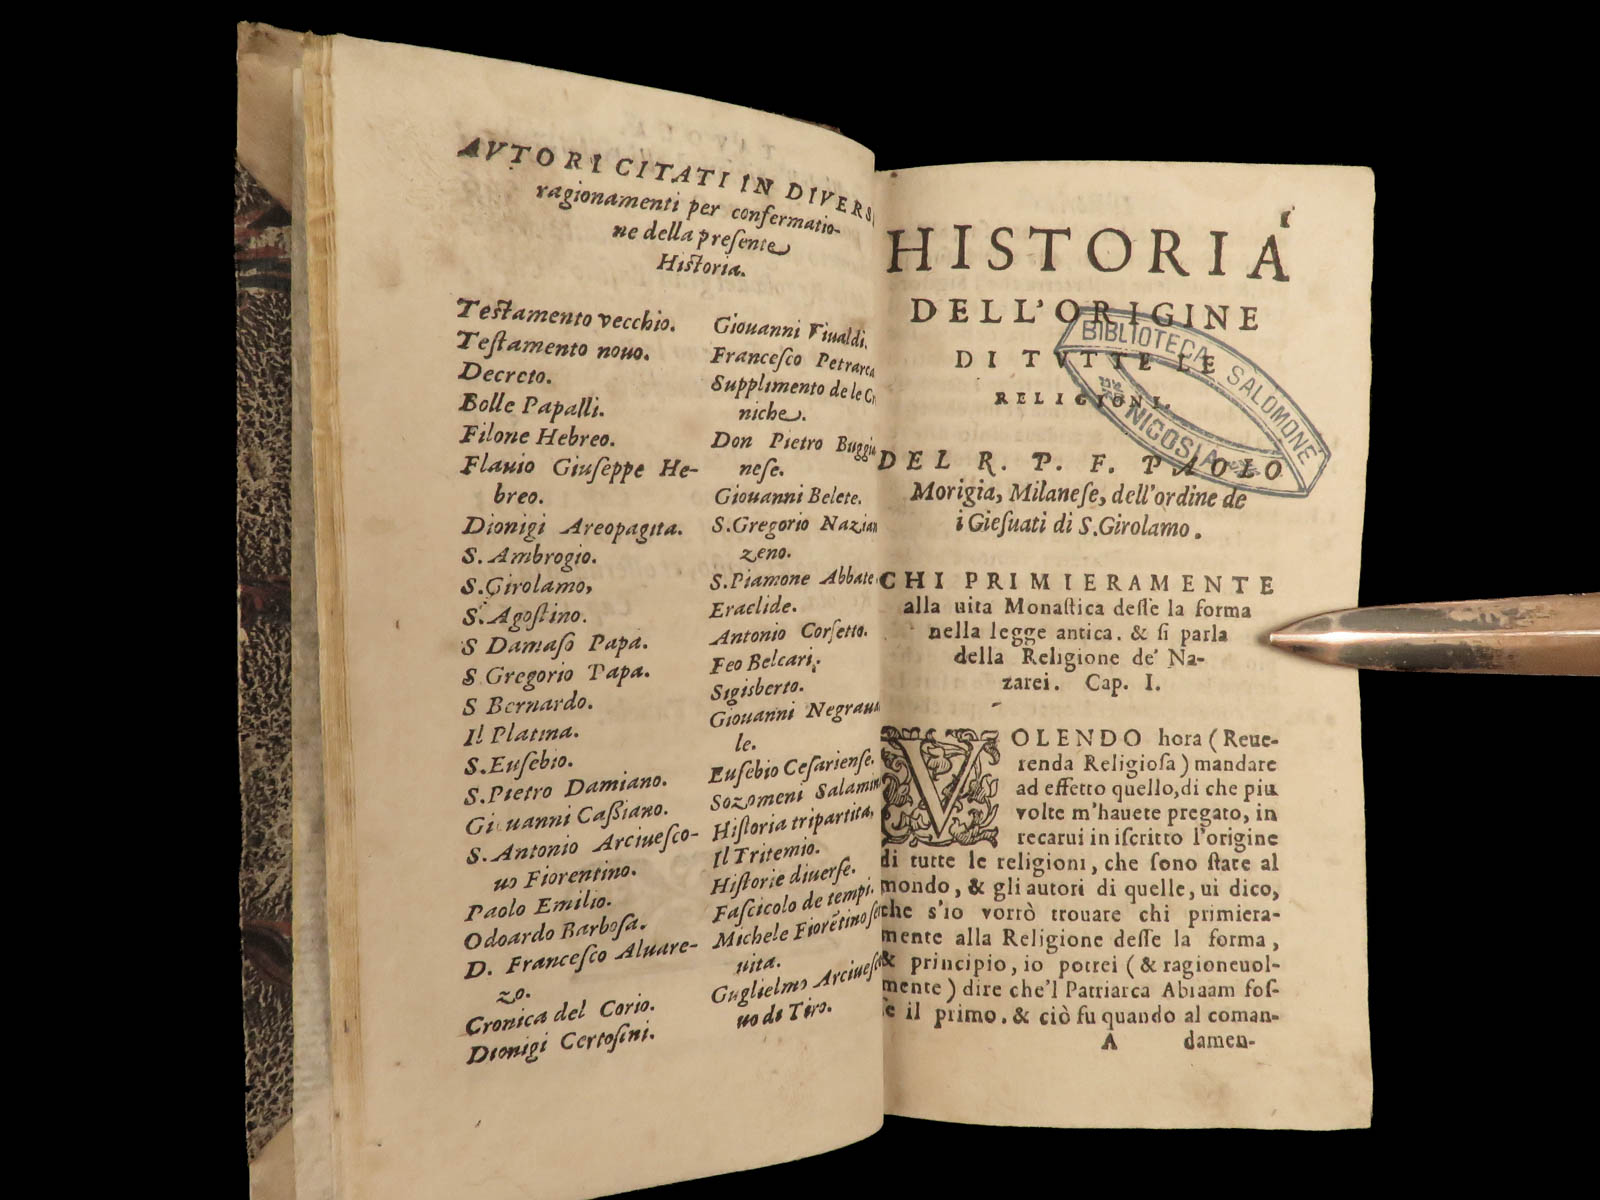 AVTORI CITATI IN DIVERSI
ragionamenti per confermatio-
ne della preſente
Hiſtoria.
Teſtamento vecchio.
Teſtamento nouo.
Decreto.
Bolle Papalli.
Filone Hebreo.
Flauio Giuſeppe He-
breo.
Dionigi Areopagita.
S. Ambrogio.
S. Girolamo,
S. Agoſtino.
S Damaſo Papa.
S Gregorio Papa.
S Bernardo.
Il Platina.
S. Euſebio.
S. Pietro Damiano.
Giouanni Caſſiano.
S. Antonio Arciueſco-
uo Fiorentino.
Paolo Emilio.
Odoardo Barboſa.
D. Franceſco Aluare-
zo.
Cronica del Corio.
Dionigi Certoſini.
Giouanni Viualdi.
Franceſco Petrarca
Supplimento de le Cr
niche.
Don Pietro Buggia
neſe.
Giouanni Belete.
S. Gregorio Nazian
zeno.
S. Piamone Abbate
Eraclide.
Antonio Corſetto.
Feo Belcari.
Sigisberto.
Giouanni Negraua
le.
Euſebio Ceſarienſe.
Sozomeni Salamin
Hiſtoria tripartita,
Il Tritemio.
Hiſtorie diuerſe.
Faſcicolo de tempi.
Michele Fiorẽtino ſer
uita.
Guglielmo Arciueſco
uo di Tiro.
1
HISTORIA
DELL'ORIGINE
DI TVTTE LE
RELIGIONI.
BIBLIOTECA SALOMONE
NICOSIA
DEL R. P. F. PAOLO
Morigia, Milaneſe, dell'ordine de
i Gieſuati di S. Girolamo.
CHI PRIMIERAMENTE
alla uita Monaſtica deſſe la forma
nella legge antica. & ſi parla
della Religione de' Na-
zarei. Cap. I.
VOLENDO hora (Reue-
renda Religioſa) mandare
ad effetto quello, di che piu
volte m'hauete pregato, in
recarui in iſcritto l'origine
di tutte le religioni, che ſono ſtate al
mondo, & gli autori di quelle, ui dico,
che s'io vorrò trouare chi primiera-
mente alla Religione deſſe la forma,
& principio, io potrei (& ragioneuol-
mente) dire che'l Patriarca Abraam foſ-
ſe il primo. & ciò fu quando al coman-
A damen-